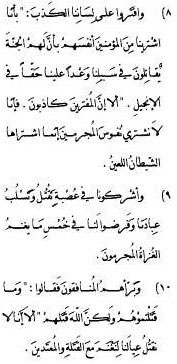 ٨) وافتروا على لساننا الكذب: "بأنا
اشترينا من المؤمنين أنفسهم بأن لهم الجنة
يقاتلون في سبيلنا وعدا علينا حقا في
الإنجيل." ألا إن المفترين كاذبون. فإنا
لا نشتري نفوس المجرمين إنما اشتراها
الشيطان اللعين.
٩) وأشركونا في عصبة تقتل وتسلب
عبادنا وفرضوا لنا في خمس ما يغنم
الغزاة المجرمون.
١٠) وبرأهم المنافقون فقالوا: "وما
قتلتموهم ولكن الله قتلهم" ألا إنا لا
نقتل عبادنا لنغنم مع القتلة والمعتدين.